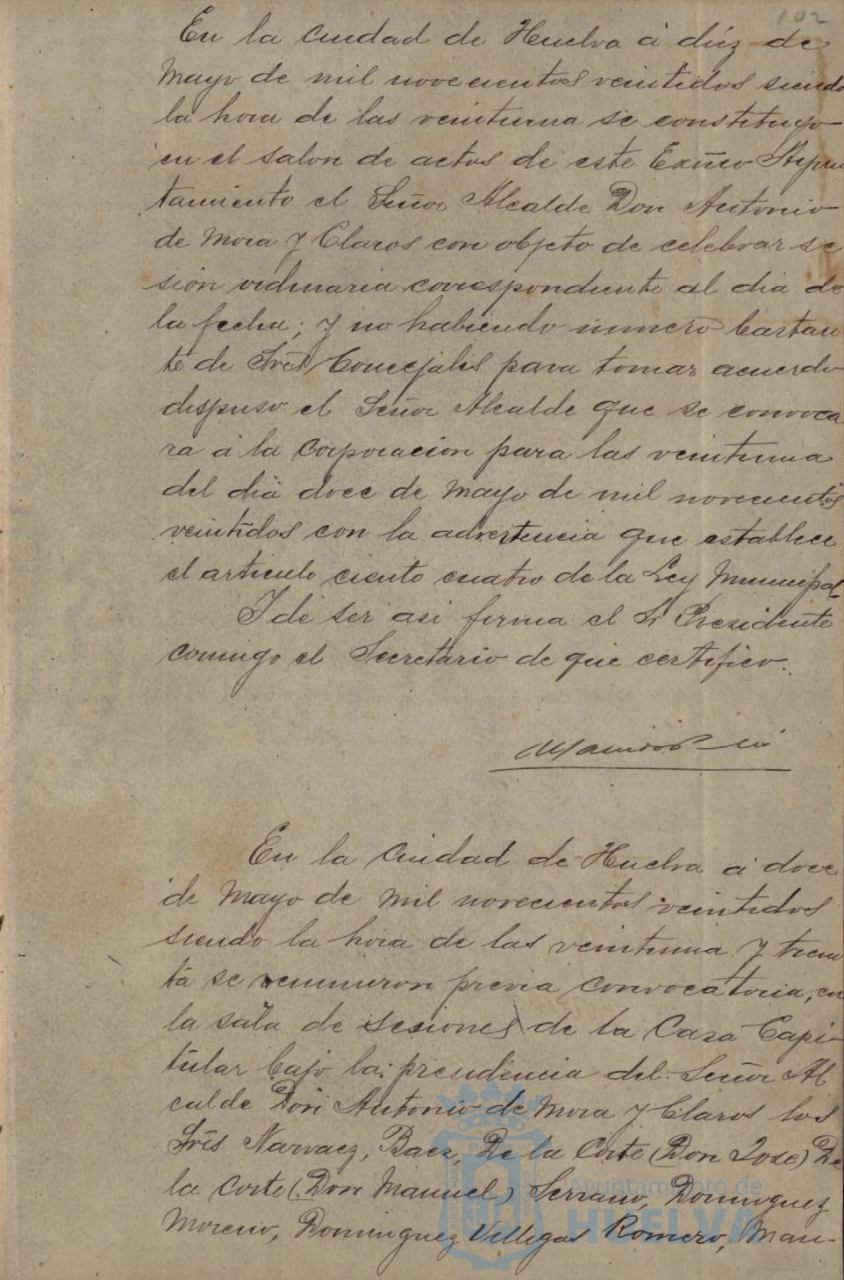 102
En la ciudad de Huelva á diéz de
Mayo de mil novecientos veintidos siendo
la hora de las veintiuna se constituyo
en el salon de actos de este Excño Ayun
tamiento el Señor Alcalde Don Antonio
de Mora y Claros con objeto de celebrar se
sión ordinaria correspondiente al dia de
la fecha; y no habiendo número bastan
te de Srēs Concejales para tomar acuerdo
dispuso el Señor Alcalde que se convoca
ra á la Corporacion para las veintiuna
del dia doce de Mayo de mil novecientos
veintidos con la advertencia que establece
el articulo ciento cuatro de la Ley Municipal
Y de ser asi firma el Sr Presidente
comigo el Secretario de que certifico.
En la Ciudad de Huelva á doce
de Mayo de mil novecientos veintidos
siendo la hora de las veintiuna y trein
ta se reunieron previa convocatoria, en
la sala de sesiones de la Casa Capi-
tular bajo la presidencia del Señor Al
calde Don Antonio de Mora y Claros los
Srēs Narvaez, Baez, De la Corte (Don Jose) De
la Corte (Don Manuel) Serrano, Dominguez
Moreno, Dominguez Villegas Romero, Man-
Ayuntamiento de
HUELVA